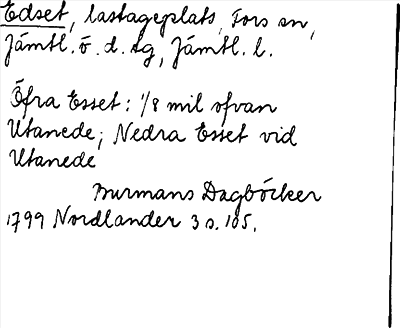 Edset, lastageplats, Fors sn,
Jämtl. ö. d. tg, Jämtl. l.
Öfra Esset: 1/8 mil ofvan
Utanede; Nedra Esset vid
Utanede
Burmans Dagböcker
1799 Nordlander 3 s. 105.